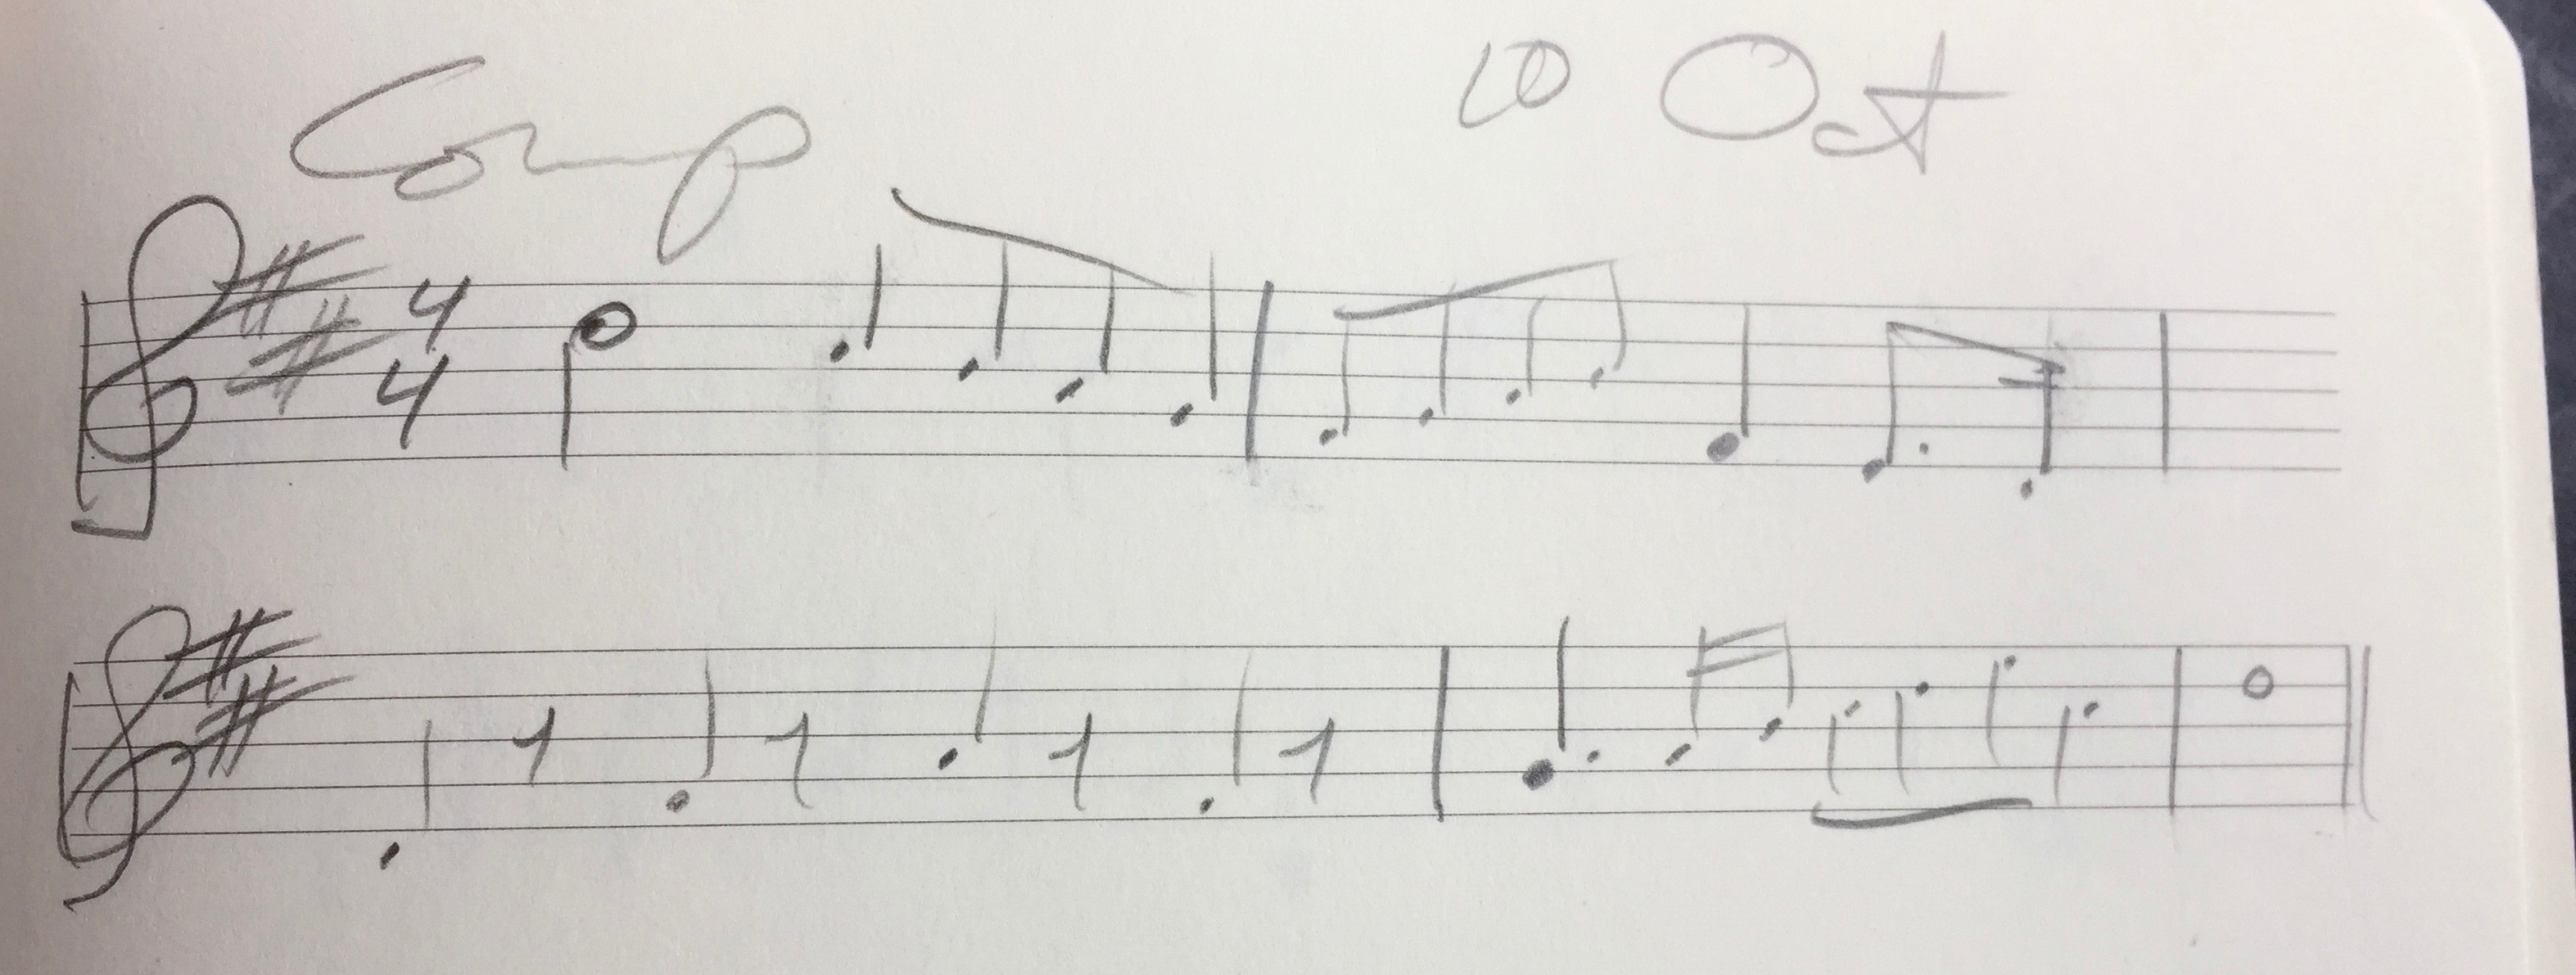 Comp 10 Oct
4
4